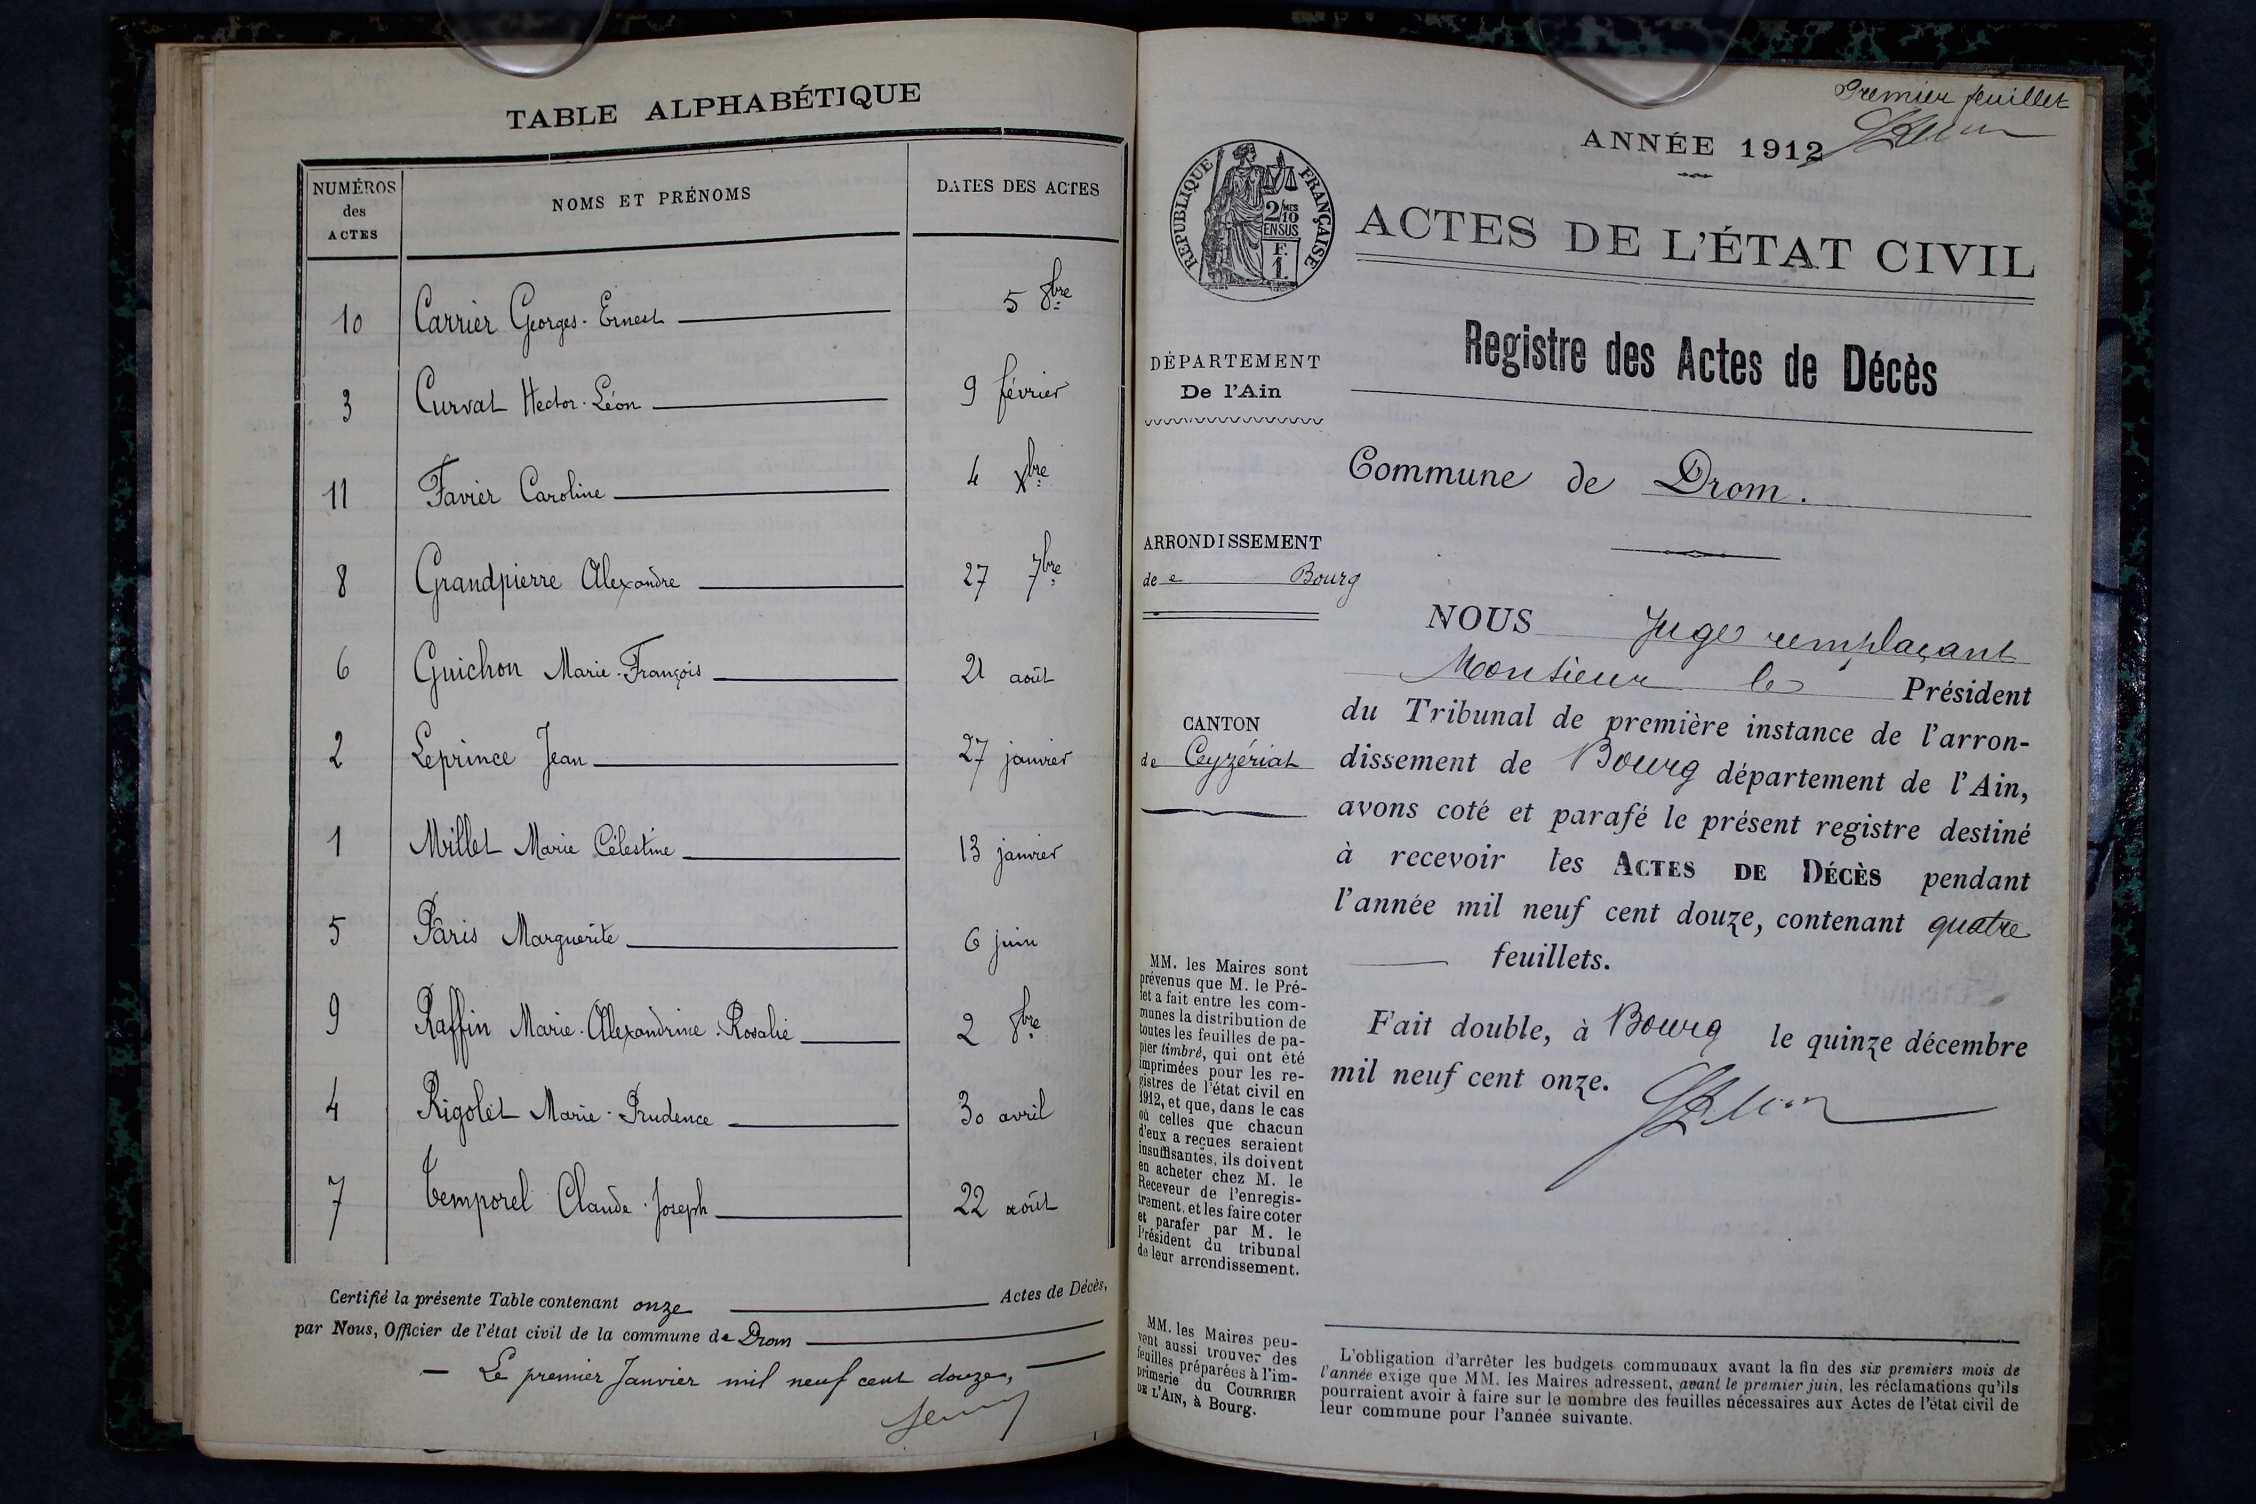 TABLE ALPHABÉTIQUE
NUMÉROS
des
ACTES
NOMS ET PRÉNOMS
DATES DES ACTES
10 Carrier Georges-Ernest 5 8bre
3 Curvat Hector-Léon 9 février
11 Favier Caroline 4 Xbre
8 Grandpierre Alexandre 27 7bre
6 Guichon Marie-François 21 août
2 Leprince Jean 27 janvier
1 Millet Marie Célestine 13 janvier
5 Pâris Marguerite 6 juin
9 Raffin Marie-Alexandrine-Rosalie 2 8bre
4 Rigolet Marie-Prudence 30 avril
7 Temporel Claude-Joseph 22 août
Certifié la présente Table contenant onze Actes de Décès,
par Nous, Officier de l'état civil de la commune de Drom
— Le premier Janvier mil neuf cent douze,
Premier feuillet
ANNÉE 1912
RÉPUBLIQUE FRANÇAISE
2/10 MES
EN SUS
F.
1.
ACTES DE L'ÉTAT CIVIL
Registre des Actes de Décès
DÉPARTEMENT
De l'Ain
Commune de Drom.
ARRONDISSEMENT
de Bourg
CANTON
de Ceyzériat
NOUS Juge remplaçant
Monsieur le Président
du Tribunal de première instance de l'arron-
dissement de Bourg département de l'Ain,
avons coté et parafé le présent registre destiné
à recevoir les ACTES DE DÉCÈS pendant
l'année mil neuf cent douze, contenant quatre
feuillets.
Fait double, à Bourg le quinze décembre
mil neuf cent onze.
MM. les Maires sont
prévenus que M. le Pré-
fet a fait entre les com-
munes la distribution de
toutes les feuilles de pa-
pier timbré, qui ont été
imprimées pour les re-
gistres de l'état civil en
1912, et que, dans le cas
où celles que chacun
d'eux a reçues seraient
insuffisantes, ils doivent
en acheter chez M. le
Receveur de l'enregis-
trement, et les faire coter
et parafer par M. le
Président du tribunal
de leur arrondissement.
MM. les Maires peu-
vent aussi trouver des
feuilles préparées à l'im-
primerie du COURRIER
DE L'AIN, à Bourg.
L'obligation d'arrêter les budgets communaux avant la fin des six premiers mois de
l'année exige que MM. les Maires adressent, avant le premier juin, les réclamations qu'ils
pourraient avoir à faire sur le nombre des feuilles nécessaires aux Actes de l'état civil de
leur commune pour l'année suivante.